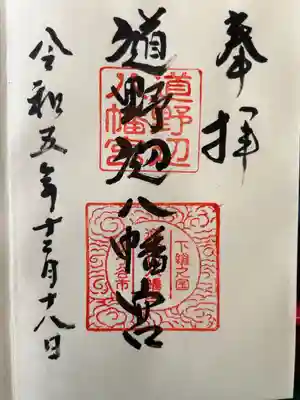 奉拝
道野辺八幡宮
道野辺
八幡宮
下総之国
令和五年十二月十八日